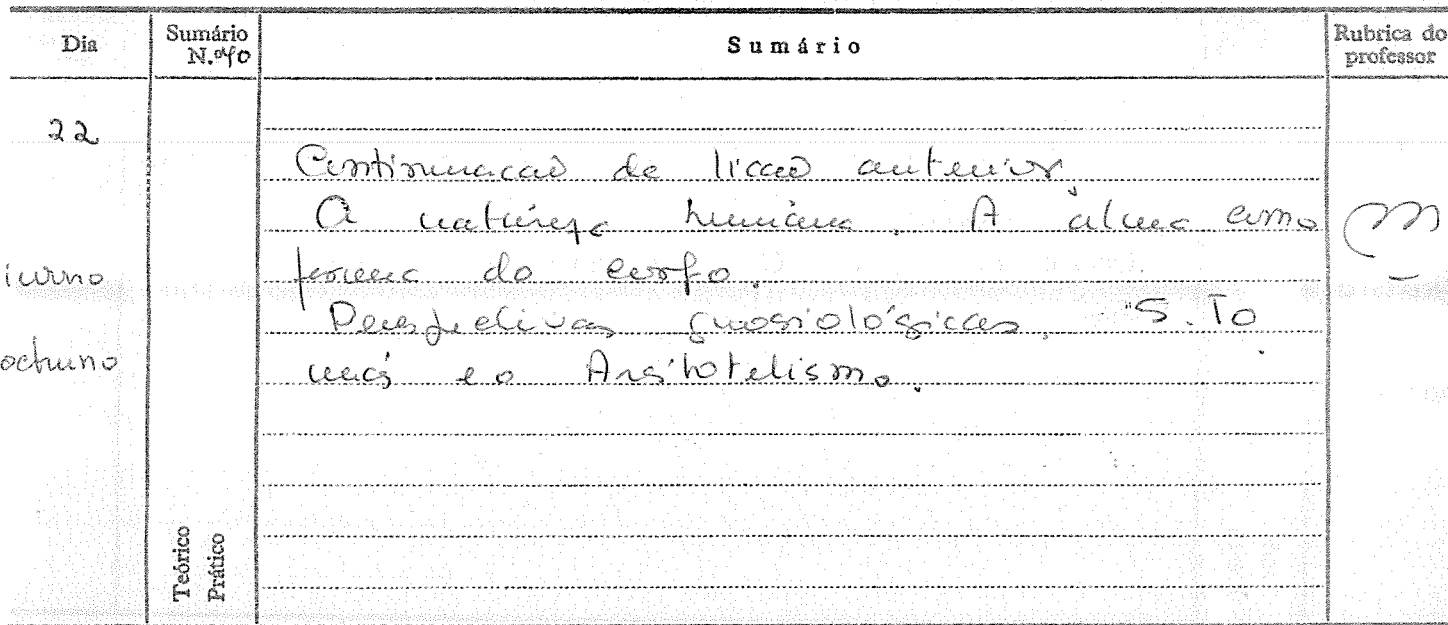 Dia
Sumário
N.º 40
Sumário
Rubrica do
professor
22
Continuação da lição anterior
A natureza humana. A alma como
iurno
forma do corpo.
Perspectivas gnosiológicas. S. To
octurno
más e o Aristotelismo.
Teórico
Prático